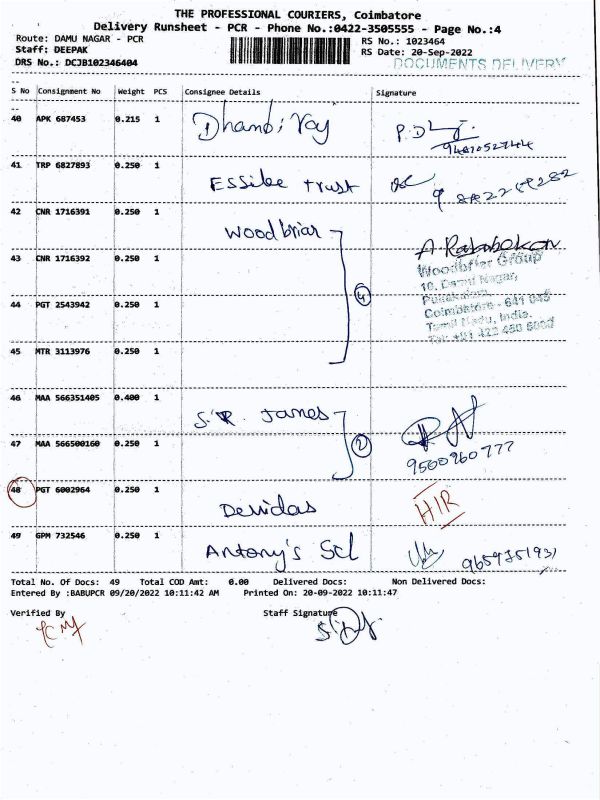 THE PROFESSIONAL COURIERS, Coimbatore
Delivery Runsheet - PCR - Phone No.:0422-3505555 - Page No.:4
Route: DAMU NAGAR - PCR
RS No.: 1023464
Staff: DEEPAK
RS Date: 20-Sep-2022
DRS No.: DCJB102346404
DOCUMENTS DELIVERY
S No Consignment No Weight PCS Consignee Details Signature
40 APK 687453 0.215 1 Dhambi ray
41 TRP 6827893 0.250 1 Essibe trust
42 CNR 1716391 0.250 1 Woodbriar
43 CNR 1716392 0.250 1
Woodbrier Group
10, Damu Nagar,
44 PGT 2543942 0.250 1 4
Puliakulam,
Coimbatore - 641 045
Tamil Nadu, India.
45 MTR 3113976 0.250 1
46 MAA 566351405 0.400 1 S.R. James
47 MAA 566500160 0.250 1 2 9500960777
48 PGT 6002964 0.250 1 Devidas HIR
49 GPM 732546 0.250 1 Antony's Scl
Total No. Of Docs: 49 Total COD Amt: 0.00 Delivered Docs: Non Delivered Docs:
Entered By :BABUPCR 09/20/2022 10:11:42 AM Printed On: 20-09-2022 10:11:47
Verified By Staff Signature